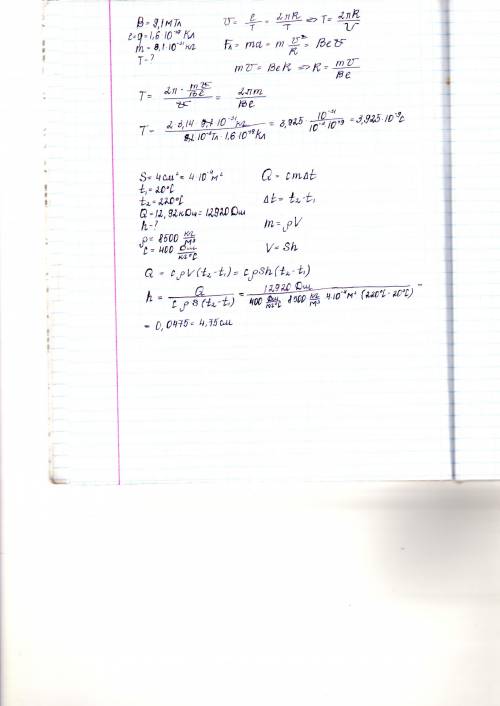 B = 9,1 мТл
e = q = 1,6·10⁻¹⁹ Кл
m = 9,1·10⁻³¹ кг
T - ?
υ = ℓ/T = 2πR/T ⇒ T = 2πR/υ
Fл = ma = m υ²/R = Beυ
mυ = BeR ⇒ R = mυ/Be
T = (2π · mυ/Be)/υ = 2πm/Be
T = (2·3,14·9,1·10⁻³¹ кг)/(9,1·10⁻³ Тл · 1,6·10⁻¹⁹ Кл) = 3,925 · 10⁻³¹/(10⁻³·10⁻¹⁹) = 3,925·10⁻⁹ с
S = 4 см² = 4·10⁻⁴ м²
t₁ = 20°C
t₂ = 220°C
Q = 12,92 кДж = 12920 Дж
h - ?
ρ = 8500 кг/м³
c = 400 Дж/кг°C
Q = cmΔt
Δt = t₂ - t₁
m = ρV
V = Sh
Q = cρV(t₂ - t₁) = cρSh(t₂ - t₁)
h = Q/(cρS(t₂ - t₁)) = 12920 Дж/(400 Дж/кг°C 8500 кг/м³ 4·10⁻⁴ м² (220°C - 20°C)) =
= 0,0475 = 4,75 см